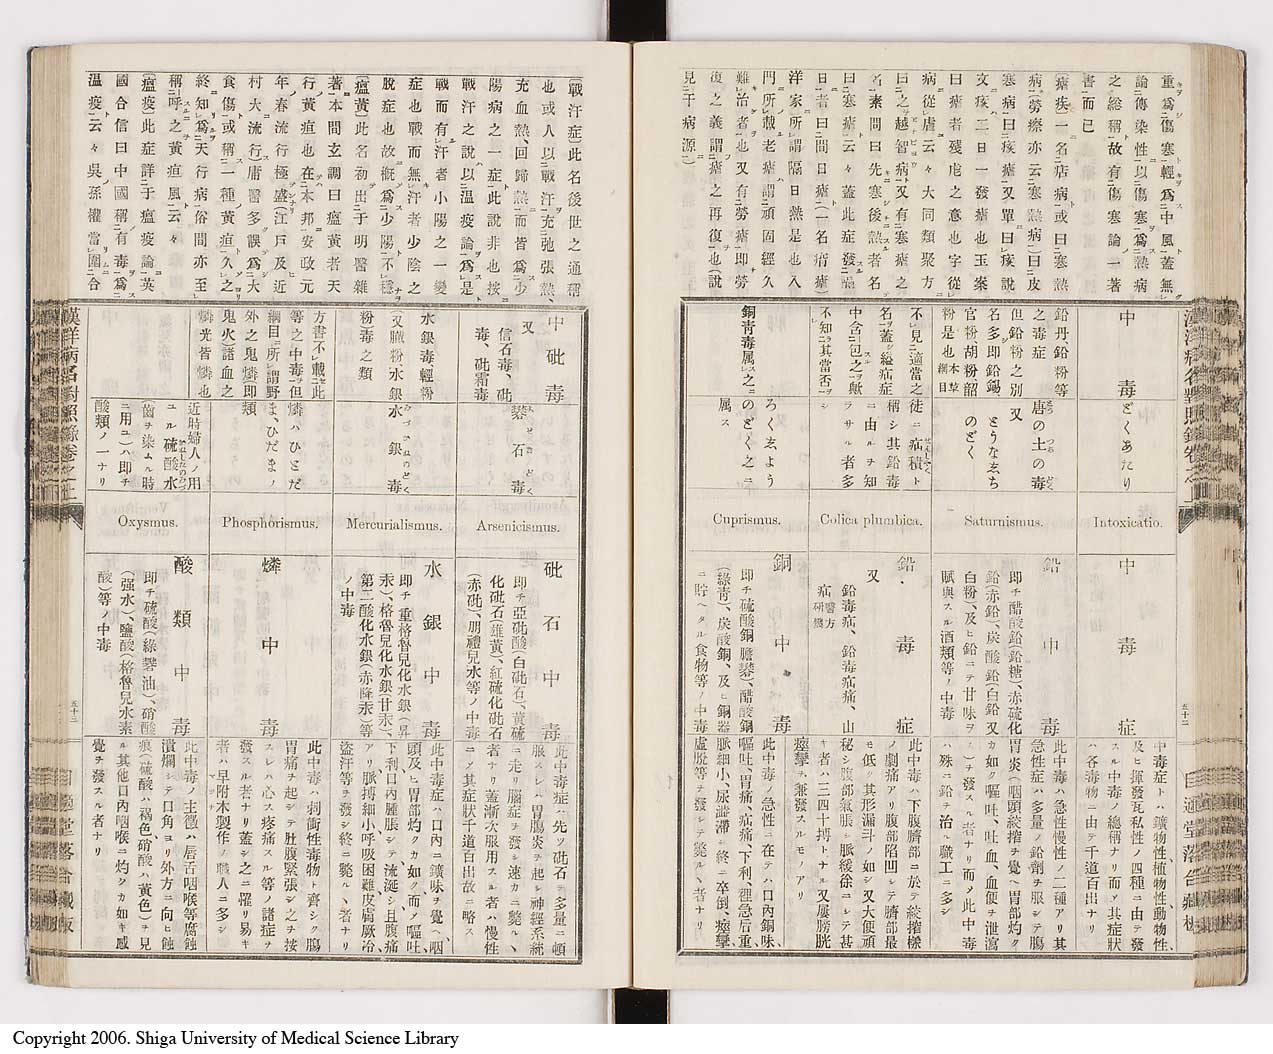 重爲傷寒輕爲中風蓋無
論傳染性以傷寒爲熱病
之總稱故有傷寒論一著
書而已
(瘧疾)一名店病或曰寒熱
病勞瘵亦云寒熱病曰皮
寒病曰痎瘧又單曰痎說
文痎二日一發瘧也玉案
曰瘧者殘虐之意也字從
病從虐云々大同類聚方
曰之越智病又有寒瘧之
名素問曰先寒後熱者名
曰寒瘧云々蓋此症發隔
日者曰間日瘧(一名痟瘧)
洋家所謂隔日熱是也入
門所載老瘧謂頑固經久
難治者也又有勞瘧即勞
復之義謂瘧之再復也(說
見于病源)
中毒
どくあたり
Intoxicatio.
中毒症
中毒症トハ鑛物性、植物性、動物性、
及ヒ揮發瓦私性ノ四種ニ由テ發
スル中毒ノ總稱ナリ而メ其症狀
ハ各毒物ニ由テ千道百出ナリ
鉛丹、鉛粉等
之毒症
但鉛粉之別
名多即鉛錫、
官粉胡粉韶
粉是也 本草綱目
唐の土の毒
又
とうな玄ち
のどく
Saturnismus.
鉛中毒
即チ醋酸鉛(鉛糖)、赤硫化
鉛(赤鉛)、炭酸鉛(白鉛又
白粉)、及ヒ鉛ニテ甘味ヲ
賦與スル酒類等ノ中毒
此中毒ハ急性慢性ノ二種アリ其
急性症ハ多量ノ鉛劑ヲ服シテ膓
胃炎(咽頭絞搾ヲ覺ヘ胃部灼ク
カ如ク嘔吐、吐血、血便ヲ泄瀉
ス)ヲ發スル者ナリ而メ此中毒
ハ殊ニ鉛ヲ治ル職工ニ多シ
不見適當之
名蓋シ總疝症
中含包之歟
不知其當否
徒ニ疝積ト
稱シ其鉛毒
ニ由ルヲ知
ラサル者多
シ
Colica plumbica.
鉛毒症
又
鉛毒疝、鉛毒疝痛、山
疝 醫方研幾
此中毒ハ下腹臍部ニ於テ絞搾樣
ノ劇痛アリ腹部陷凹シテ臍部最
モ低ク其形漏斗ノ如シ又大便頑
秘シ腹部氣脹シ脈緩徐ニシテ甚
キ者ハ三四十搏トナル又屢膀胱
痙攣ヲ兼發スルモノアリ
銅靑毒属之
ろく玄よう
のどく之ニ
属ス
Cuprismus.
銅中毒
即チ硫酸銅(膽礬)、醋酸銅
(綠靑)、炭酸銅、及ヒ銅器
ニ貯ヘタル食物等ノ中毒
此中毒ノ急性ニ在テハ口內銅味、
嘔吐、胃痛、疝痛、下利、裡急后重、
脈細小、尿澁滯シ終ニ卒倒、痙攣
虛脫等ヲ發シテ斃ルヽ者ナリ
漢洋病名對照錄卷之上
五十二
回春堂落合藏板
(戰汗症)此名後世之通稱
也或人以戰汗充弛張熱、
充血熱、回歸熱而皆爲少
陽病之一症此說非也按
戰汗之說以溫疫論爲是
戰而有汗者小陽之一變
症也戰而無汗者少陰之
脫症也故槪爲少陽不穩
(瘟黃)此名初出于明醫雜
著本間玄調曰瘟黃者天
行黃疸也在本邦安政元
年春流行極盛(江戶及近
村大流行)庸醫多誤爲大
食傷或稱一種黃疸久之
終知爲天行病俗間亦至
稱呼之黃疸風云々
(瘟疫)此症詳于瘟疫論英
國合信曰中國稱有毒爲
溫疫云々吳孫權當圍合
中砒毒
又
信石毒、砒
毒、砒霜毒
礬石毒
Arsenicismus.
砒石中毒
即チ亞砒酸(白砒石)、黃硫
化砒石(雄黃)、紅硫化砒石
(赤砒)、朋禮兒水等ノ中毒
此中毒症ハ先ツ砒石ヲ多量ニ頓
服スレハ胃膓炎ヲ起シ神經系統
ニ走リ腦症ヲ發シ速カニ斃ルヽ
者ナリ蓋漸次服用スル者ハ慢性
ニノ其症狀千道百出故ニ略ス
水銀毒輕粉
(又膩粉水銀
粉)毒之類
水銀毒
Mercurialismus.
水銀中毒
即チ重格魯兒化水銀(昇
汞)、格魯兒化水銀(甘汞)、
第二酸化水銀(赤降汞)等
ノ中毒
此中毒症ハ口內ニ鑛味ヲ覺ヘ咽
頭及ヒ胃部灼クカ如ク而メ嘔吐、
下利口內腫脹シテ流涎シ且腹痛
アリ脈搏細小呼吸困難皮膚厥冷
盜汗等ヲ發シ終ニ斃ルヽ者ナリ
方書不載如此
等之中毒但
綱目所謂野
外之鬼燐即
鬼火)諸血之
燐光皆燐也
燐ハひとだ
ま、ひだまノ
類
Phosphorismus.
燐中毒
此中毒ハ刺衝性毒物ト齊シク膓
胃痛ヲ起シテ肚腹緊張シ之ヲ按
スレハ心ス疼痛スル等ノ諸症ヲ
發スル者ナリ蓋シ之ニ罹リ易キ
者ハ早附木製作ノ職人ニ多シ
近時婦人ノ用
ユル硫酸水
歯ヲ染ムル時
ニ用ユ)ハ即チ
酸類ノ一ナリ
Oxysmus.
酸類中毒
即チ硫酸(綠礬油)、硝酸
(强水)、鹽酸(格魯兒水素
酸)等ノ中毒
此中毒ノ主徵ハ唇舌咽喉等腐蝕
潰爛シテ口角ヨリ外方ニ向ヒ蝕
痕(硫酸ハ褐色、硝酸ハ黃色)ヲ見
ル其他口內咽喉ニ灼クカ如キ感
覺ヲ發スル者ナリ
漢洋病名對照錄卷之上
五十三
回春堂落合藏板
Copyright 2006. Shiga University of Medical Science Library